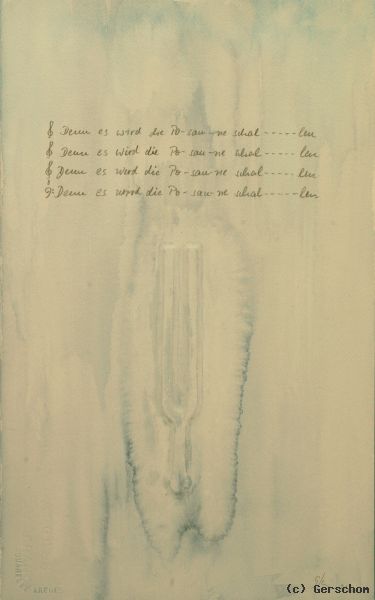 Denn es wird die Po-sau-ne schal-----len
Denn es wird die Po-sau-ne schal-----len
Denn es wird die Po-sau-ne schal-----len
Denn es wird die Po-sau-ne schal-----len
ARCHES
(c) Gerschom